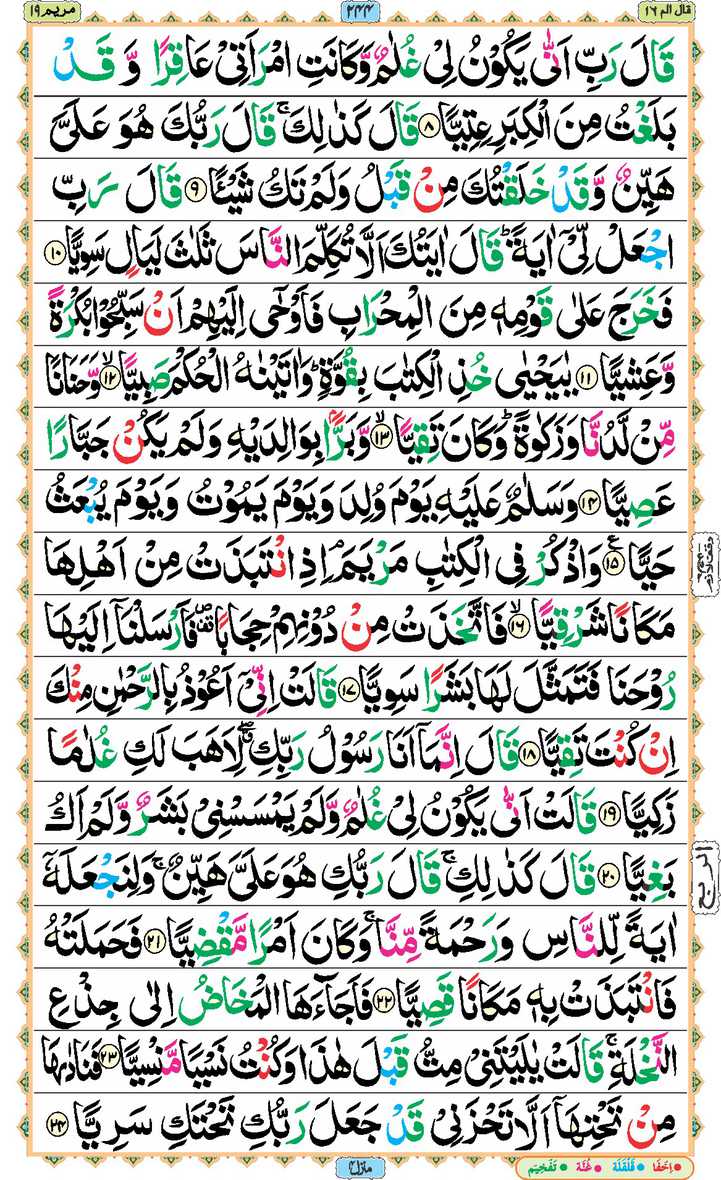 قال الم ١٦
٢٤٤
مريم ١٩
قَالَ رَبِّ اَنّٰى يَكُوْنُ لِىْ غُلٰمٌ وَّكَانَتِ امْرَاَتِىْ عَاقِرًا وَّ قَدْ
بَلَغْتُ مِنَ الْكِبَرِ عِتِيًّا ۝٨ قَالَ كَذٰلِكَ ۚ قَالَ رَبُّكَ هُوَ عَلَىَّ
هَيِّنٌ وَّقَدْ خَلَقْتُكَ مِنْ قَبْلُ وَلَمْ تَكُ شَيْـًٔا ۝٩ قَالَ رَبِّ
اجْعَلْ لِّىْٓ اٰيَةً ؕ قَالَ اٰيَتُكَ اَلَّا تُكَلِّمَ النَّاسَ ثَلٰثَ لَيَالٍ سَوِيًّا ۝١٠
فَخَرَجَ عَلٰى قَوْمِهٖ مِنَ الْمِحْرَابِ فَاَوْحٰٓى اِلَيْهِمْ اَنْ سَبِّحُوْا بُكْرَةً
وَّعَشِيًّا ۝١١ يٰيَحْيٰى خُذِ الْكِتٰبَ بِقُوَّةٍ ؕ وَاٰتَيْنٰهُ الْحُكْمَ صَبِيًّا ۙ۝١٢ وَّحَنَانًا
مِّنْ لَّدُنَّا وَزَكٰوةً ؕ وَكَانَ تَقِيًّا ۙ۝١٣ وَّبَرًّۢا بِوَالِدَيْهِ وَلَمْ يَكُنْ جَبَّارًا
عَصِيًّا ۝١٤ وَسَلٰمٌ عَلَيْهِ يَوْمَ وُلِدَ وَيَوْمَ يَمُوْتُ وَيَوْمَ يُبْعَثُ
حَيًّا ۝١٥ؑ وَاذْكُرْ فِى الْكِتٰبِ مَرْيَمَ ۘ اِذِ انْتَبَذَتْ مِنْ اَهْلِهَا
مَكَانًا شَرْقِيًّا ۙ۝١٦ فَاتَّخَذَتْ مِنْ دُوْنِهِمْ حِجَابًا ۪۠ فَاَرْسَلْنَاۤ اِلَيْهَا
رُوْحَنَا فَتَمَثَّلَ لَهَا بَشَرًا سَوِيًّا ۝١٧ قَالَتْ اِنِّىْٓ اَعُوْذُ بِالرَّحْمٰنِ مِنْكَ
اِنْ كُنْتَ تَقِيًّا ۝١٨ قَالَ اِنَّمَاۤ اَنَا رَسُوْلُ رَبِّكِ ۖۗ لِاَهَبَ لَكِ غُلٰمًا
زَكِيًّا ۝١٩ قَالَتْ اَنّٰى يَكُوْنُ لِىْ غُلٰمٌ وَّلَمْ يَمْسَسْنِىْ بَشَرٌ وَّلَمْ اَكُ
بَغِيًّا ۝٢٠ قَالَ كَذٰلِكِ ۚ قَالَ رَبُّكِ هُوَ عَلَىَّ هَيِّنٌ ۚ وَلِنَجْعَلَهٗۤ
اٰيَةً لِّلنَّاسِ وَرَحْمَةً مِّنَّا ۚ وَكَانَ اَمْرًا مَّقْضِيًّا ۝٢١ فَحَمَلَتْهُ
فَانْتَبَذَتْ بِهٖ مَكَانًا قَصِيًّا ۝٢٢ فَاَجَآءَهَا الْمَخَاضُ اِلٰى جِذْعِ
النَّخْلَةِ ۚ قَالَتْ يٰلَيْتَنِىْ مِتُّ قَبْلَ هٰذَا وَكُنْتُ نَسْيًا مَّنْسِيًّا ۝٢٣ فَنَادٰىهَا
مِنْ تَحْتِهَاۤ اَلَّا تَحْزَنِىْ قَدْ جَعَلَ رَبُّكِ تَحْتَكِ سَرِيًّا ۝٢٤
وقف لازم
الربع
منزل ٤
اِخفَا • قَلْقَلَة • غُنَّه • تَفْخِيْم